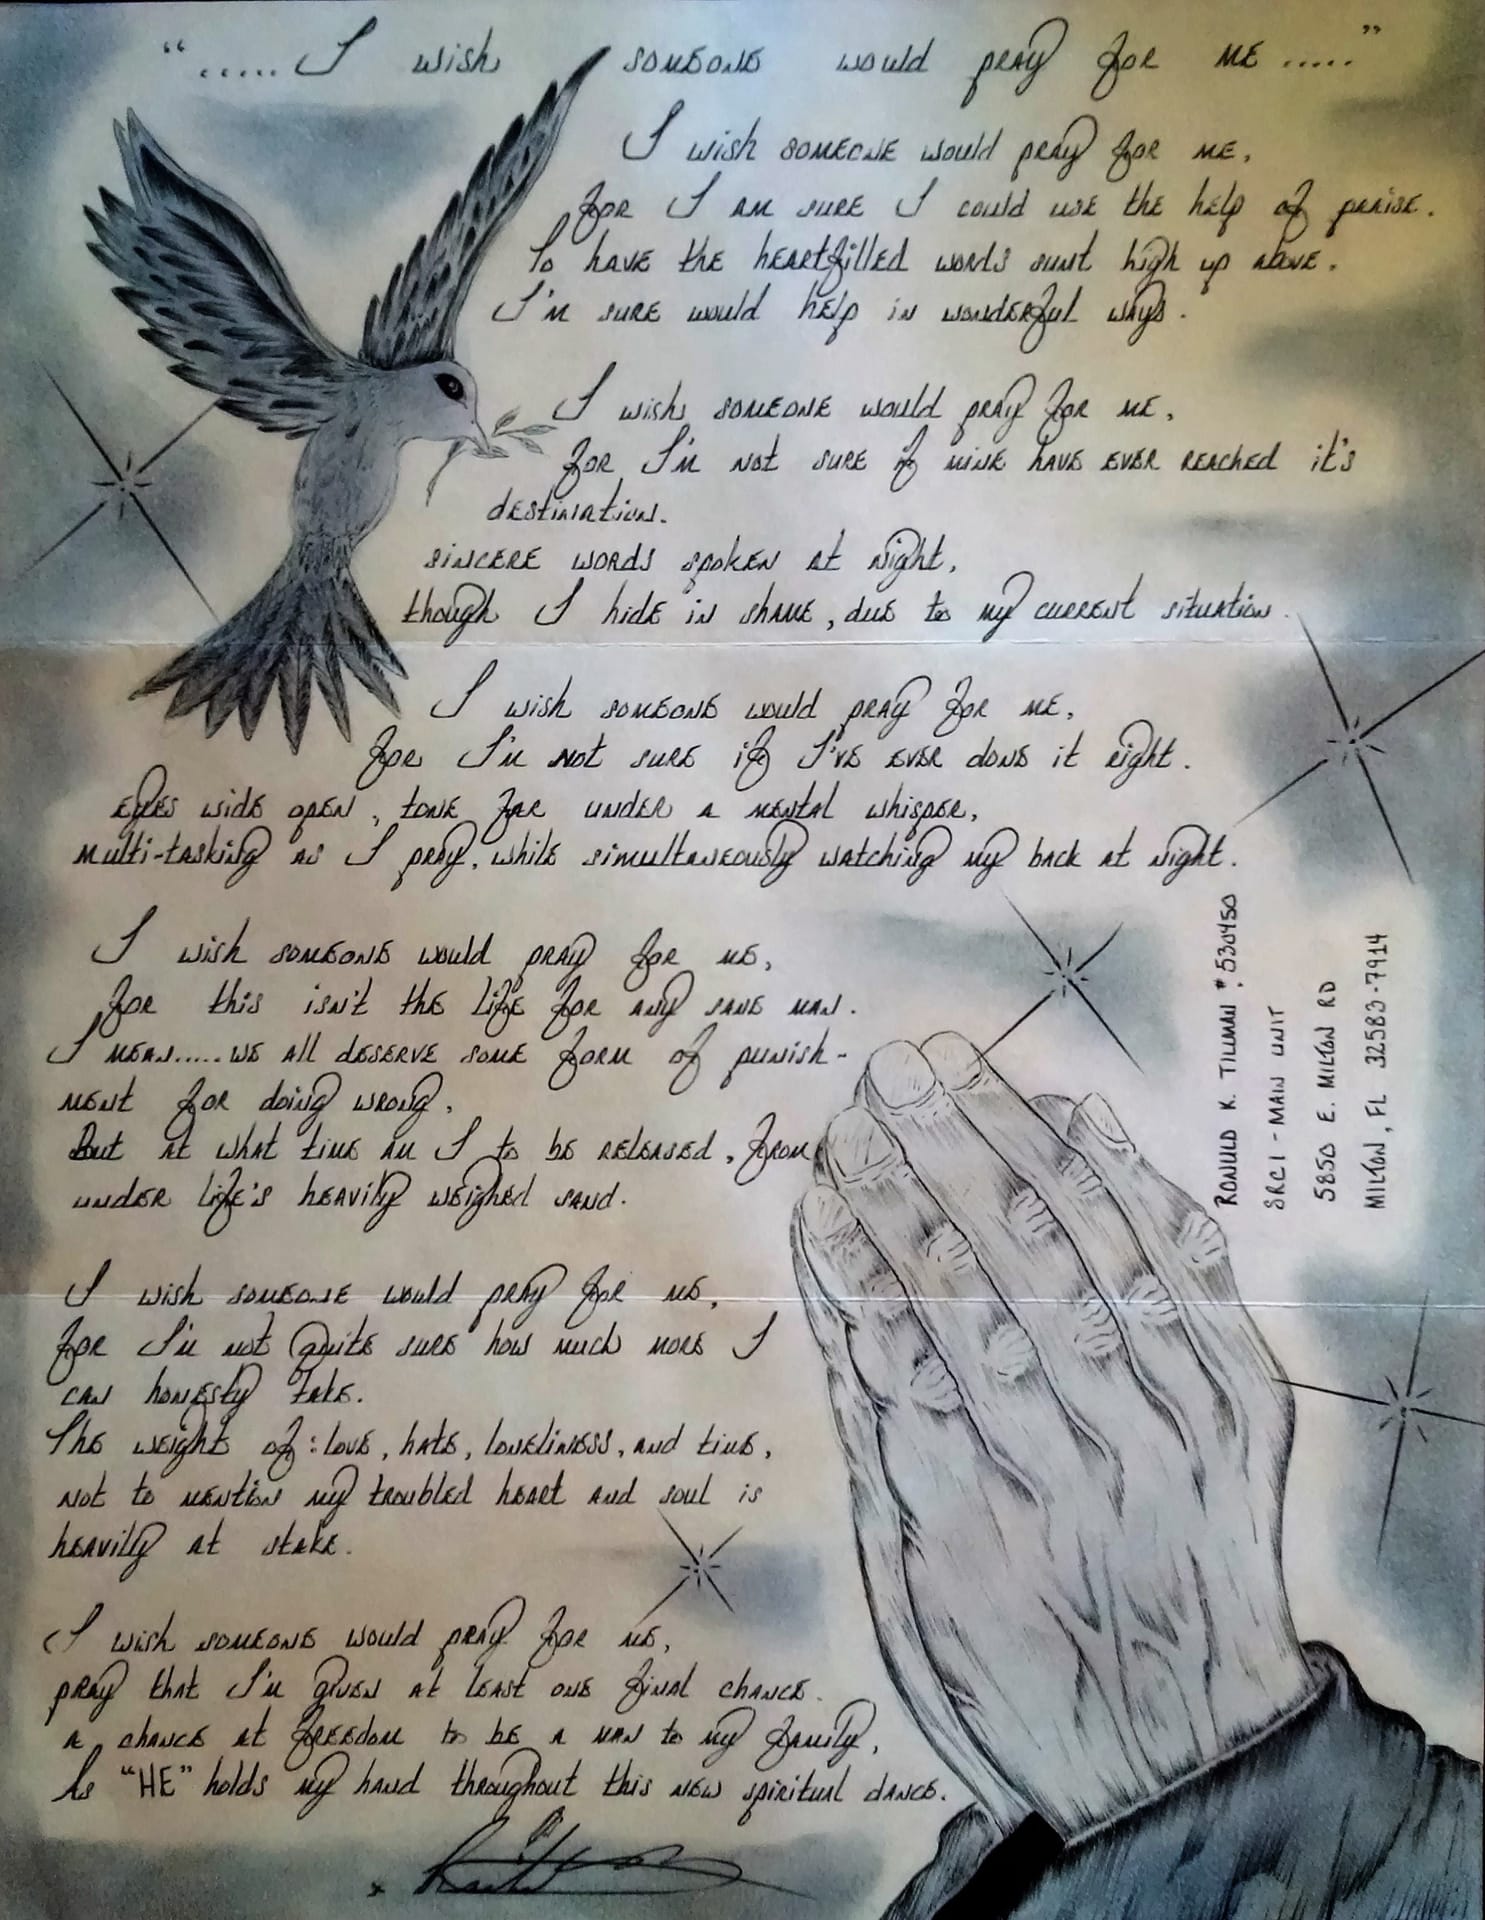 ".....I wish someone would pray for me....."
I wish someone would pray for me,
for I am sure I could use the help of praise.
To have the heartfilled words sunt high up above.
I'm sure would help in wonderful ways.
I wish someone would pray for me,
for I'm not sure if mine have ever reached it's
destination.
sincere words spoken at night,
though I hide in shame, due to my current situation.
I wish someone would pray for me,
for I'm not sure if I've ever done it right.
eyes wide open, tone far under a mental whisper,
multi-tasking as I pray, while simultaneously watching my back at night.
I wish someone would pray for me,
for this isn't the life for any sane man.
I mean.....we all deserve some form of punish-
ment for doing wrong,
But at what time am I to be released, from
under life's heavily weighed sand.
I wish someone would pray for me,
for I'm not quite sure how much more I
can honesty take.
The weight of: love, hate, loneliness, and time,
not to mention my troubled heart and soul is
heavily at stake.
I wish someone would pray for me,
pray that I'm given at least one final chance.
a chance at freedom to be a man to my family,
As "HE" holds my hand throughout this new spiritual dance.
RONULD K. TILLMAN #530450
SRCI - MAIN UNIT
5850 E. MILTON RD
MILTON, FL 32583-7914